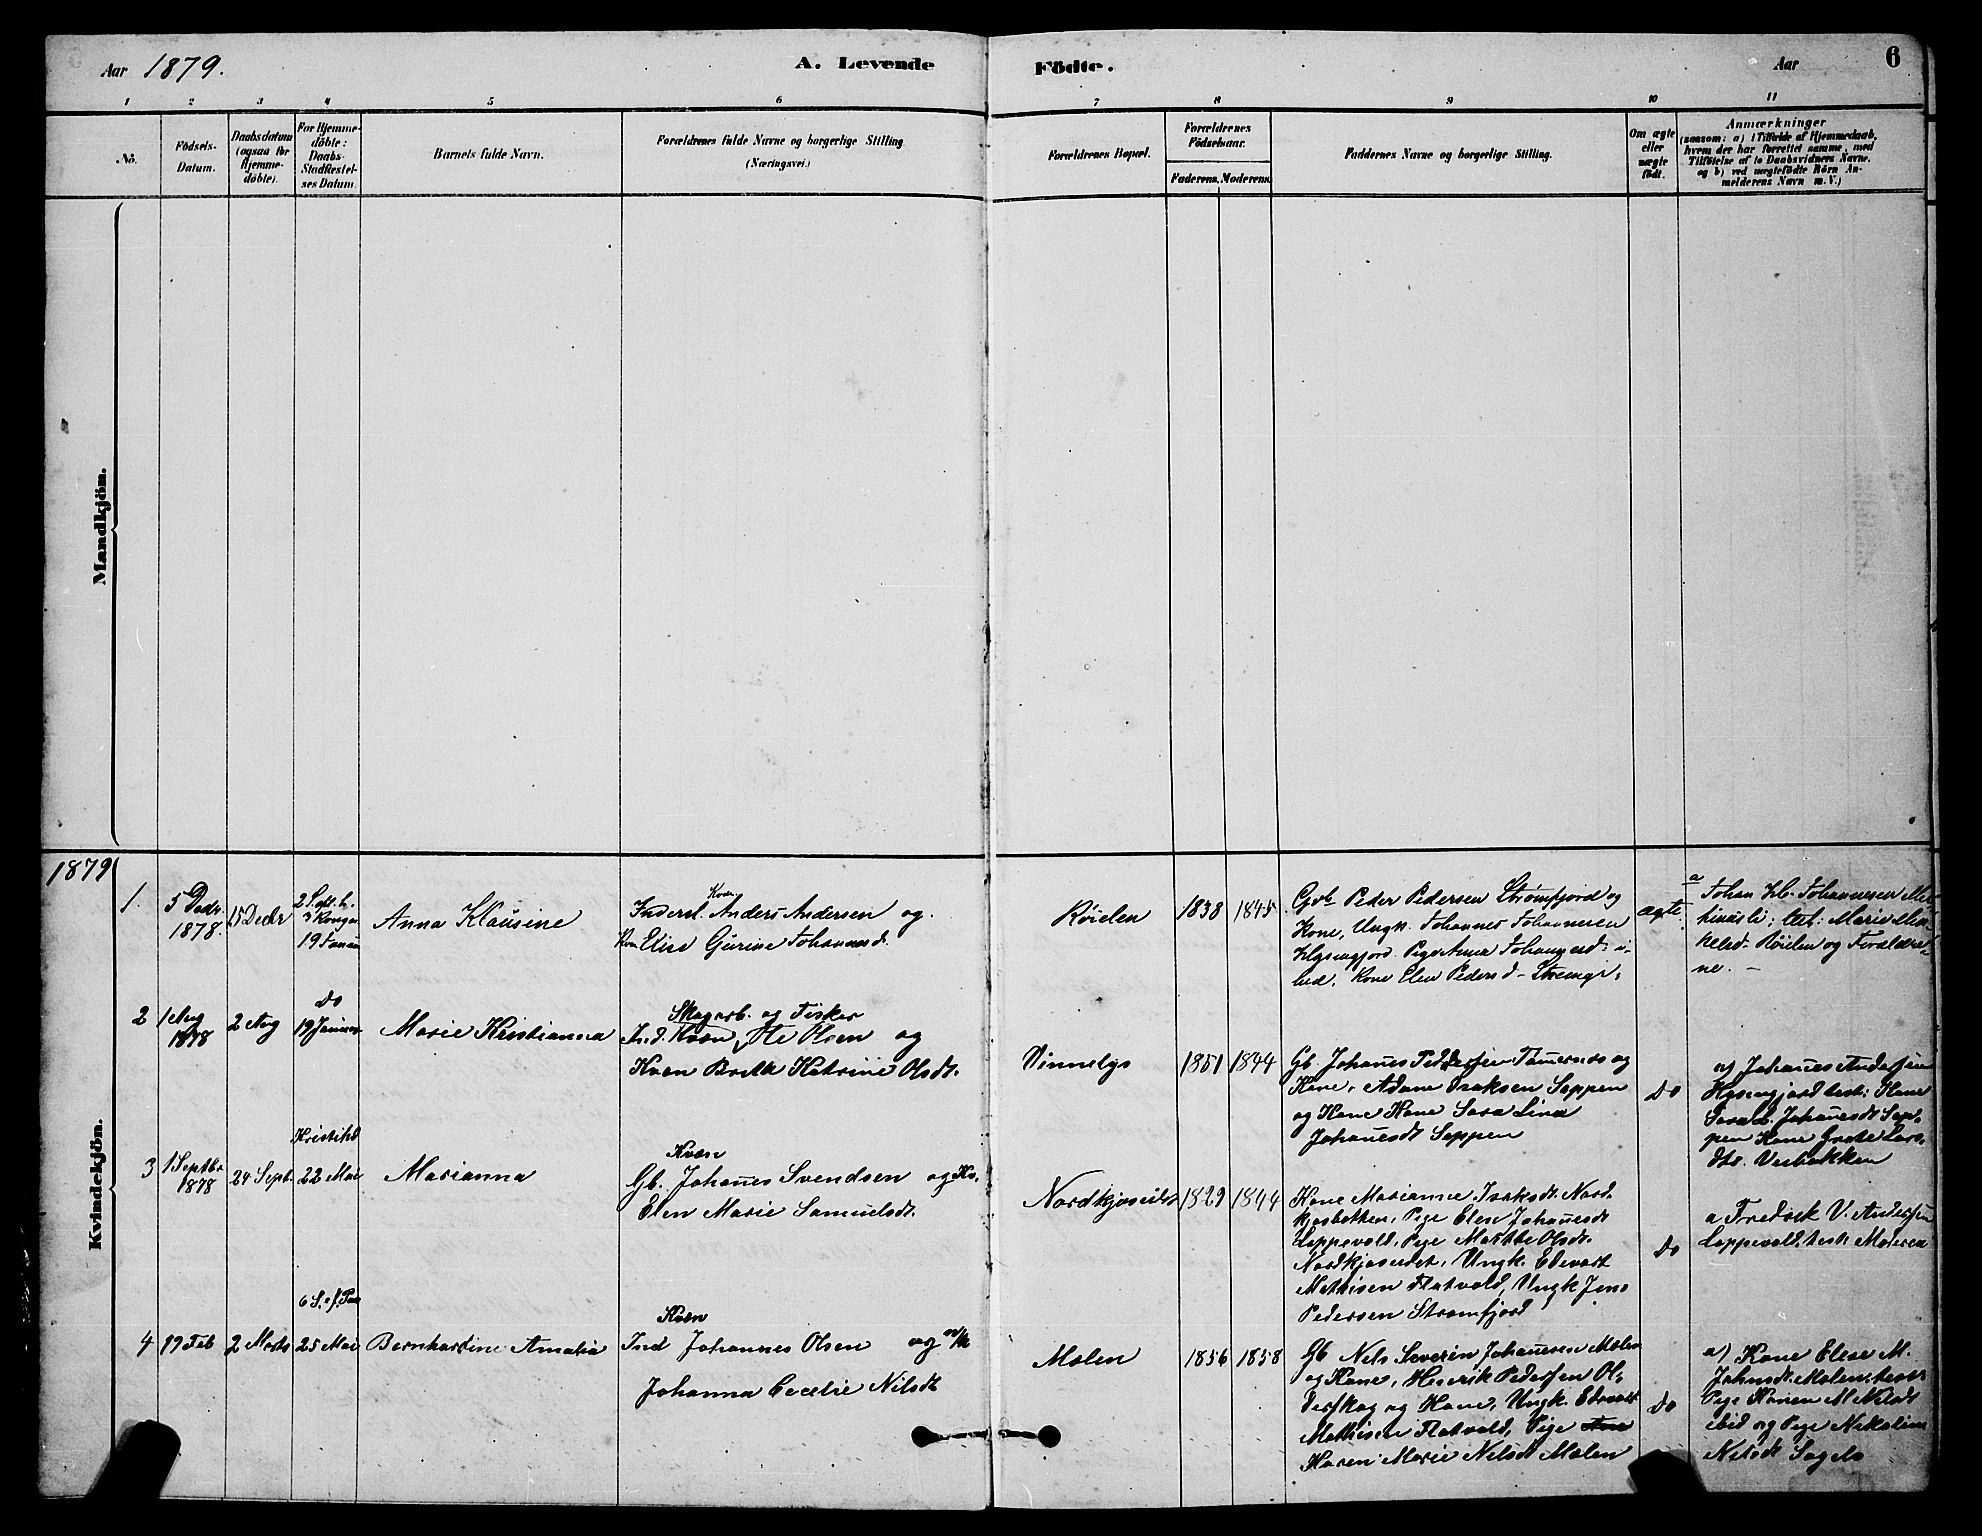 Aar 1879. A. Levende Födte. Aar 6
1 2 3 4 5 6 7 8 9 10 11
No.
Födsels-
Datum.
Daabsdatum
(ogsaa for
Hjemme-
döbte).
For Hjemme-
döbte:
Daabs-
Stadfæstel-
ses Datum.
Barnets fulde Navn.
Forældrenes fulde Navne og borgerlige Stilling
(Næringsvei.)
Forældrenes Bopæl.
Forældrenes
Födselsaar.
Faderens. Moderens.
Faddernes Navne og borgerlige Stilling.
Om ægte
eller
uægte
födt.
Anmærkninger
(saasom: a) i Tilfælde af Hjemmedaab,
hvem der har forrettet samme, med
Tilföielse af to Daabsvidners Navne.
og b) ved uægtefödte Börn An-
melderens Navn m.V.)
Mandkjön.
Kvindekjön.
1879
1.
5 Decbr
1878.
15 Decbr
19 Januar
Anna Klausine
Kvæn
Inderst. Anders Andersen og
Kvæn Elise Gurine Johannesd.
Röielen
1838 1845
Gbr Peder Pedersen Strömfjord og
Kone, Ungk. Johannes Johannesen
Pige Anna Johannesd.
Kone Elen Pedersd.
ægte.
a
Johan
Röielen og Forældre-
ne. –
2
1 Aug
1878
2 Aug
Do
19 Januar
Marie Kristianna
Skogarb. og Fisker
Ind. Kvæn, Ole Olsen og
Kvæn Brith Katrine Olsdt.
Vinnelys
1851 1844
Gb. Johañes Peddersen Tømernes og
Kone, Adam Isaksen Seppen
og Kone Kone Sara Lina
Johañesdt Seppen
Do
a) Johañes Andersen
test: Kone
Sara L. Johañesdt Sep-
pen Kone Grete Lars-
dtr. Veibakken
3
1 Septbr
1878
24 Septb.
22 Mai
Marianna
Kvæn
Gb. Johañes Svendsen og Kv.
Elen Marie Samuelsdt.
1829 1844
Kone Marianne Isaksdt. Nord-
kjosbotten, Pige Elen Johañesdt
Loppevold, Pige Marthe Olsdt.
Nordkjoseidet, Ungk. Edevart
Mathisen Flatvold, Ungk Jens
Pedersen Strømfjord
Do
a Fredrek V. Andersen
Loppevold, test: Moderen
4
19 Feb
2 Marts
25 Mai
Bernhardine Amalia
Kvæn
Ind Johannes Olsen og
Johanna Cecelie Nilsdt
Molen
1856 1858
Gb Nels Severin Johañesen Molen
og Kone, Henrik Pedersen Ol-
derskog og Kone, Ungk. Edevart
Mathisen Flatvold, Pige Ane
Karen Marie Nilsdt Molen
Do
a) Kone Elese M.
Johnsdt Molen, test:
Pige Karen M Nilsdt
ibid og Pige Nikoline
Nilsdt Sagelv